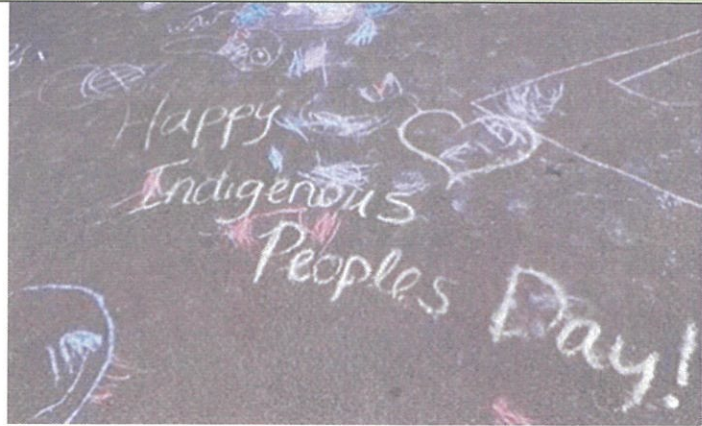 Happy
Indigenous
Peoples
Day!